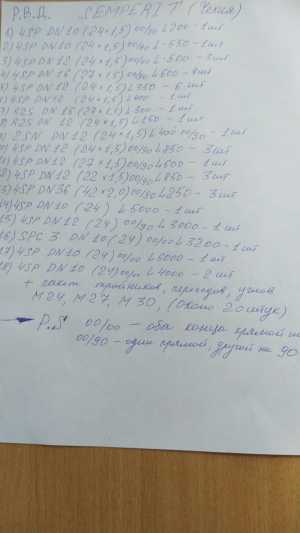 Р.В.Д. SEMPERIT (Чехия)
1) 4SP DN10 (24×1,5) 00/90 L700 - 1 шт
2) 4SP DN10 (24×1,5) 00/90 L-550 - 1 шт
3) 4SP DN12 (24×1,5) 00/90 L-500 - 3 шт
4) 4SP DN16 (27×1,5) 00/90 L600 - 4 шт
4SP DN12 (24×1,5) L350 - 6 шт
4SP DN12 (24×1,5) L400 - 1 шт
R2S DN 16 L300 - 1 шт
R2S DN 12 (24×1,5) L150 - 1 шт
2SN DN12 (24×1,5) L400 00/90 - 1 шт
4SP DN12 (24×1,5) 00/90 L850 - 3 шт
4SP DN12 (27×1,5) 00/90 L600 - 1 шт
4SP DN12 (22×1,5) 00/90 L850 - 3 шт
3) 4SP DN36 (42×2,0) 00/90 L250 - 3 шт
14) 4SP DN10 (24) L5000 - 1 шт
15) 4SP DN12 (24) 00/90 L3000 - 1 шт
16) SPC 3 DN10 (24) 00/00 L3200 - 1 шт
17) 4SP DN10 (24) 00/00 L6000 - 1 шт
18) 4SP DN10 (24) 00/00 L4000 - 2 шт
+ тройников, переходов, углов
М24, М27, М30, (около 20 штук)
P.S 00/00 - оба конца прямой
00/90 - один прямой, другой на 90